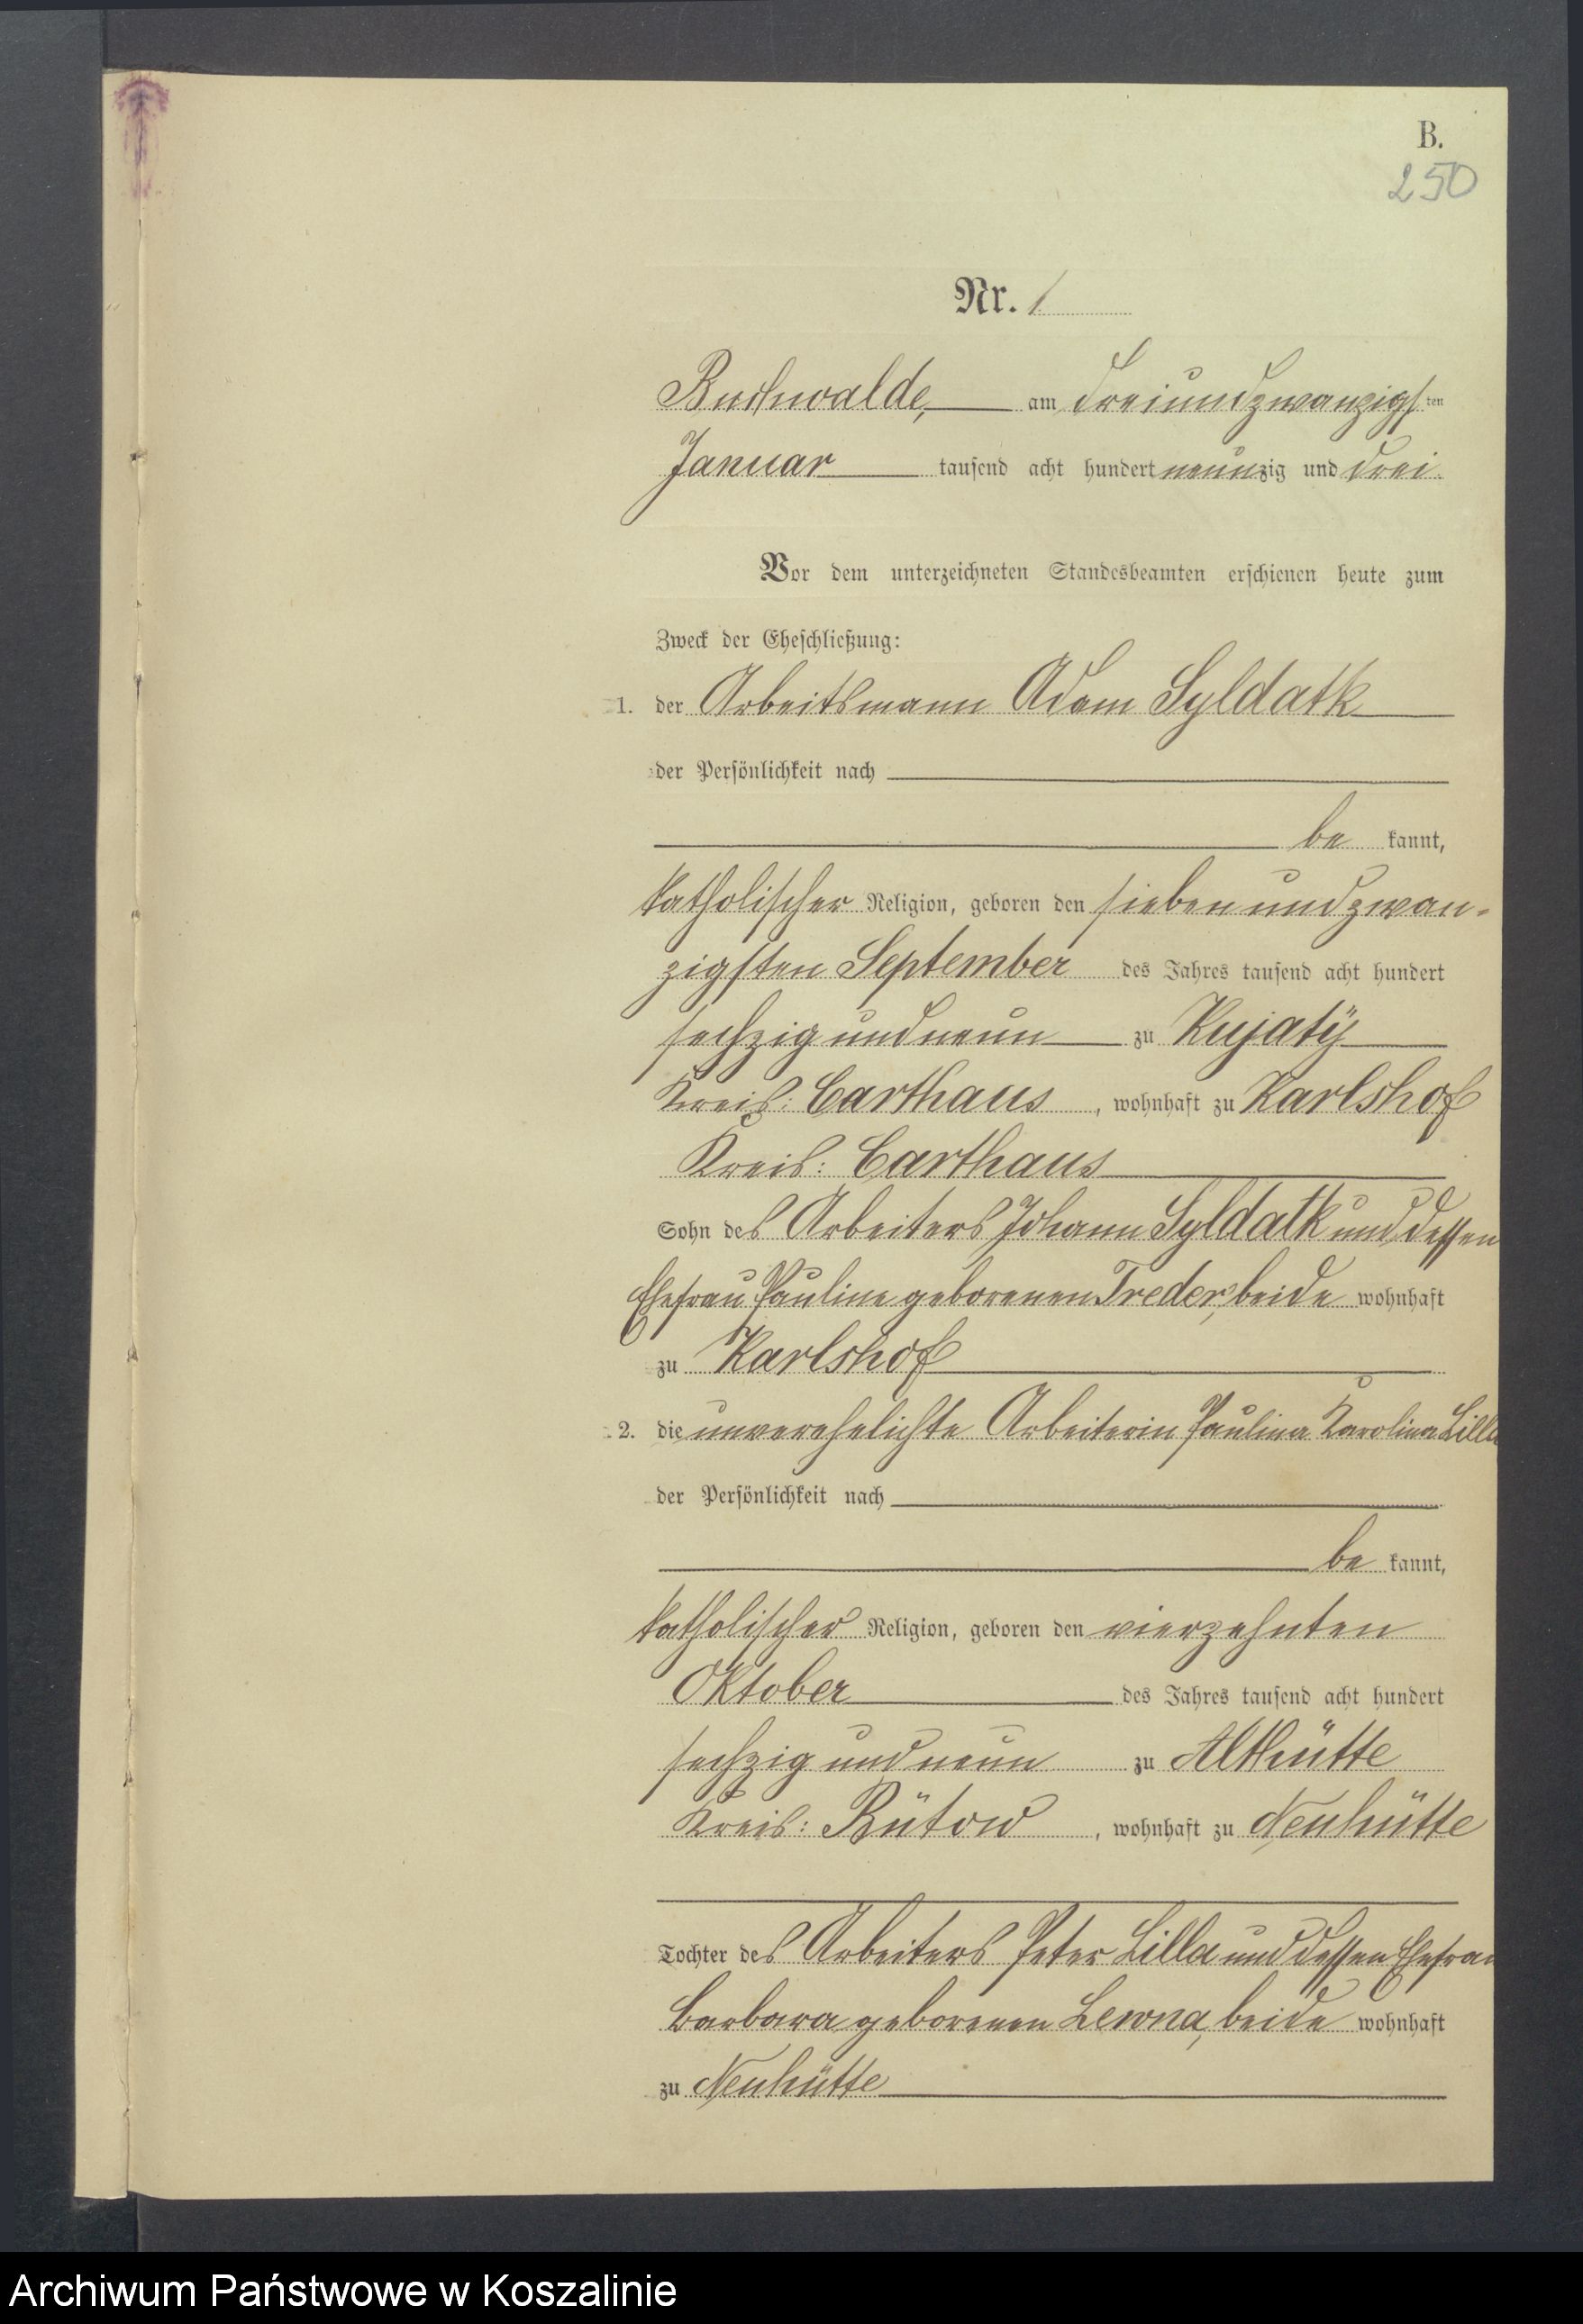 B.
250
Nr. 1
Buchwalde, am dreiundzwanzigsten
Januar tausend acht hundert neunzig und drei.
Vor dem unterzeichneten Standesbeamten erschienen heute zum
Zweck der Eheschließung:
1. der Arbeitsmann Adam Syldatk
der Persönlichkeit nach
be kannt,
katholischer Religion, geboren den siebenundzwan-
zigsten September des Jahres tausend acht hundert
sechzig und neun zu Kujaty
Kreis: Carthaus, wohnhaft zu Karlshof
Kreis: Carthaus
Sohn des Arbeiters Johann Syldatk und dessen
Ehefrau Pauline geborenen Treder, beide wohnhaft
zu Karlshof
2. die unverehelichte Arbeiterin Paulina Karolina Lilla
der Persönlichkeit nach
be kannt,
katholischer Religion, geboren den vierzehnten
Oktober des Jahres tausend acht hundert
sechzig und neun zu Althütte
Kreis: Bütow, wohnhaft zu Neuhütte
Tochter des Arbeiters Peter Lilla und dessen Ehefrau
Barbara geborenen Lewna, beide wohnhaft
zu Neuhütte
Archiwum Państwowe w Koszalinie